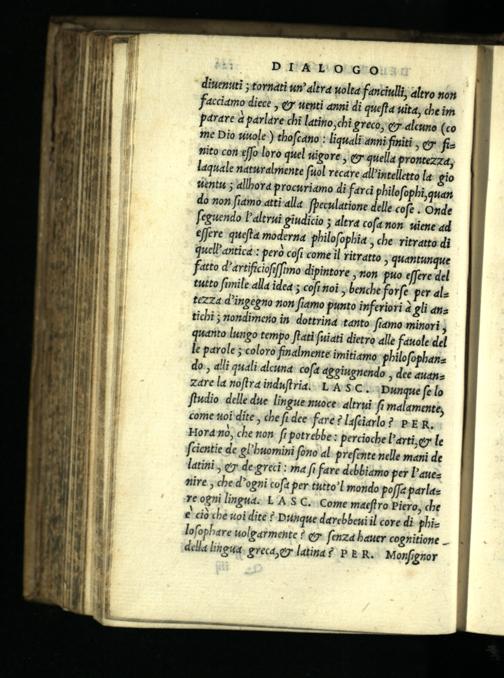 DIALOGO
divenuti; tornati un'altra uolta fanciulli, altro non
facciamo diece, & uenti anni di questa uita, che im
parare à parlare chi latino, chi greco, & alcuno (co
me Dio uuole) thoscano: liquali anni finiti, & fi-
nito con esso loro quel uigore, & quella prontezza,
laquale naturalmente suol recare all'intelletto la gio
uentu; allhora procuriamo di farci philosophi, quan
do non siamo atti alla speculatione delle cose. Onde
seguendo l'altrui giudicio; altra cosa non uiene ad
essere questa moderna philosophia, che ritratto di
quell'antica: però cosi come il ritratto, quantunque
fatto d'artificiosissimo dipintore, non puo essere del
tutto simile alla idea; cosi noi, benche forse per al=
tezza d'ingegno non siamo punto inferiori à gli an=
tichi; nondimeno in dottrina tanto siamo minori,
quanto lungo tempo stati suiati dietro alle fauole del
le parole; coloro finalmente imitiamo philosophan=
do, alli quali alcuna cosa aggiugnendo, dee auan=
zare la nostra industria. LASC. Dunque se lo
studio delle due lingue nuoce altrui si malamente,
come uoi dite, che si dee fare? lasciarlo? PER.
Hora nò, che non si potrebbe: percioche l'arti, & le
scientie de gl'huomini sono al presente nelle mani de
latini, & de greci: ma si fare debbiamo per l'aue=
nire, che d'ogni cosa per tutto'l mondo possa parla=
re ogni lingua. LASC. Come maestro Piero, che
è ciò che uoi dite? Dunque darebbeui il core di phi=
losophare uolgarmente? & senza hauer cognitione
della lingua greca, & latina? PER. Monsignor